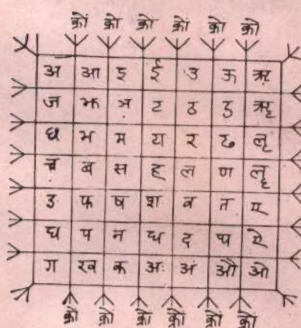 क्रों क्रों क्रों क्रों क्रों क्रों
अ आ इ ई उ ऊ ऋ
ज झ ञ ट ठ ड ॠ
ध भ म य र ढ ऌ
च ब स ह ल ण ॡ
उ फ ष श व त ए
घ प न ध द थ ऐ
ग ख क अः अं औ ओ
क्रों क्रों क्रों क्रों क्रों क्रों